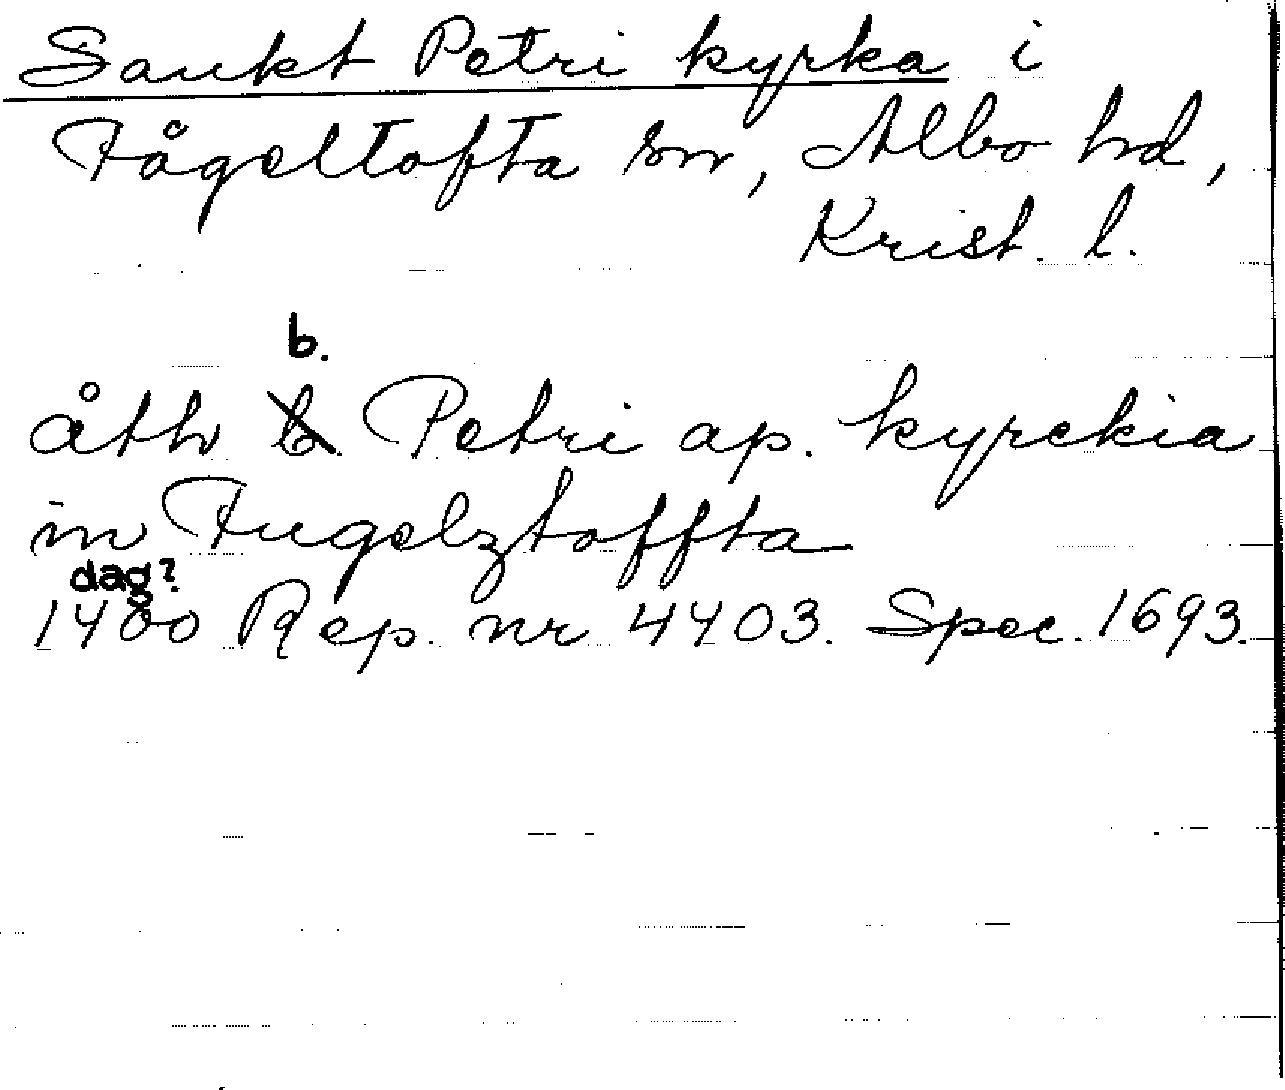 Sankt Petri kyrka i
Fågeltofta sn, Albo hd,
Krist. l.
b.
åth b. Petri ap. kyrckia
in Fugelztoffta
dag?
1400 Rep. nr 4403. Spec. 1693.